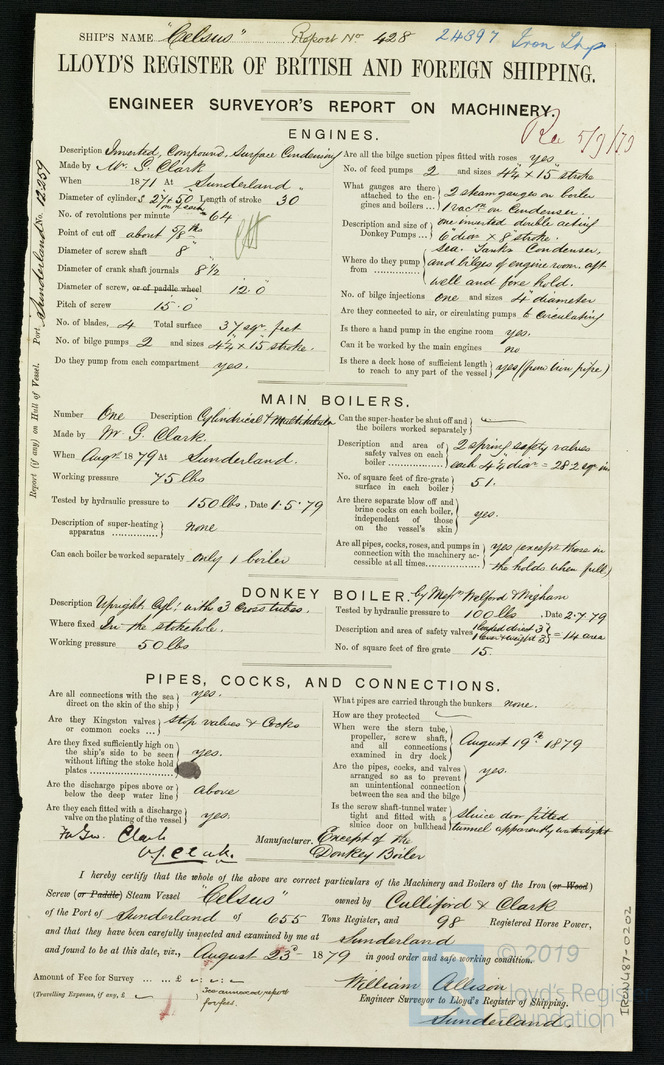 SHIP'S NAME "Celsus" Report No 428 24897 Iron Shp
LLOYD'S REGISTER OF BRITISH AND FOREIGN SHIPPING.
ENGINEER SURVEYOR'S REPORT ON MACHINERY.
Rec 5/9/79
Report (if any) on Hull of Vessel. Port Sunderland No. 12259
ENGINES.
Description Inverted, Compound, Surface Condensing
Made by Mr. G. Clark
When 1871 At Sunderland "
Diameter of cylinders 27 & 50 Length of stroke 30
No. of revolutions per minute 64
Point of cut off about 5/8 ths
Diameter of screw shaft 8"
Diameter of crank shaft journals 8 1/2
Diameter of screw, or of paddle wheel 12.0
Pitch of screw 15.0
No. of blades, 4 Total surface 37 sqr. feet
No. of bilge pumps 2 and sizes 4 1/4 x 15 stroke.
Do they pump from each compartment yes.
Are all the bilge suction pipes fitted with roses yes
No. of feed pumps 2 and sizes 4 1/4 x 15 stroke
What gauges are there attached to the engines and boilers ... 2 steam gauges on boiler
1 vacm on Condenser.
Description and size of Donkey Pumps ... one inverted double acting
6" dia x 8 stroke.
Where do they pump from ... Sea. Tanks Condenser,
and bilges of engine room, aft
well and fore hold.
No. of bilge injections one and sizes 4" diameter
Are they connected to air, or circulating pumps to Circulating
Is there a hand pump in the engine room yes.
Can it be worked by the main engines no
Is there a deck hose of sufficient length to reach to any part of the vessel yes (from iron pipe)
MAIN BOILERS.
Number One Description Cylindrical & Multitubular
Made by Mr G. Clark.
When Augt 1879 At Sunderland.
Working pressure 75 lbs
Tested by hydraulic pressure to 150 lbs, Date 1.5.79
Description of super-heating apparatus ... none
Can each boiler be worked separately only 1 boiler
Can the super-heater be shut off and the boilers worked separately
Description and area of safety valves on each boiler ... 2 spring safety valves
each 4 1/4 dia = 28.2 sqr in
No. of square feet of fire-grate surface in each boiler 51.
Are there separate blow off and brine cocks on each boiler, independent of those on the vessel's skin yes.
Are all pipes, cocks, roses, and pumps in connection with the machinery accessible at all times ... yes (except those in
the holds when full)
DONKEY BOILER. by Messrs Welford & Wigham
Description Upright Cyl: with 3 Cross tubes.
Where fixed In the stokehole.
Working pressure 50 lbs
Tested by hydraulic pressure to 100 lbs, Date 2.7.79
Description and area of safety valves 1 loaded direct 3"
1 lever & weight 3" = 14 area
No. of square feet of fire grate 15.
PIPES, COCKS, AND CONNECTIONS.
Are all connections with the sea direct on the skin of the ship yes.
Are they Kingston valves or common cocks ... stop valves & Cocks
Are they fixed sufficiently high on the ship's side to be seen without lifting the stoke hold plates ... yes.
Are the discharge pipes above or below the deep water line above
Are they each fitted with a discharge valve on the plating of the vessel yes.
What pipes are carried through the bunkers none.
How are they protected
When were the stern tube, propeller, screw shaft, and all connections examined in dry dock August 19th 1879
Are the pipes, cocks, and valves arranged so as to prevent an unintentional connection between the sea and the bilge yes.
Is the screw shaft-tunnel water tight and fitted with a sluice door on bulkhead sluice door fitted
tunnel apparently watertight
For Geo. Clark Manufacturer. Except of the
Donkey Boiler
I hereby certify that the whole of the above are correct particulars of the Machinery and Boilers of the Iron (or Wood)
Screw (or Paddle) Steam Vessel "Celsus" owned by Culliford & Clark
of the Port of Sunderland of 655 Tons Register, and 98 Registered Horse Power,
and that they have been carefully inspected and examined by me at Sunderland
and found to be at this date, viz., August 23d 1879 in good order and safe working condition.
Amount of Fee for Survey ... ... £
(Travelling Expenses, if any, £
See annexed report
for fees.
William Allison
Engineer Surveyor to Lloyd's Register of Shipping.
Sunderland.
© 2019
LR
Lloyd's Register
Foundation
IRON487-0202